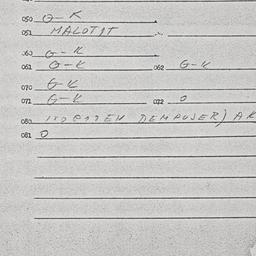 050 G-K
051 MALOTIT
060 G-K
061 G-K 062 G-K
070 G-K
071 G-K 072 0
080
081 0